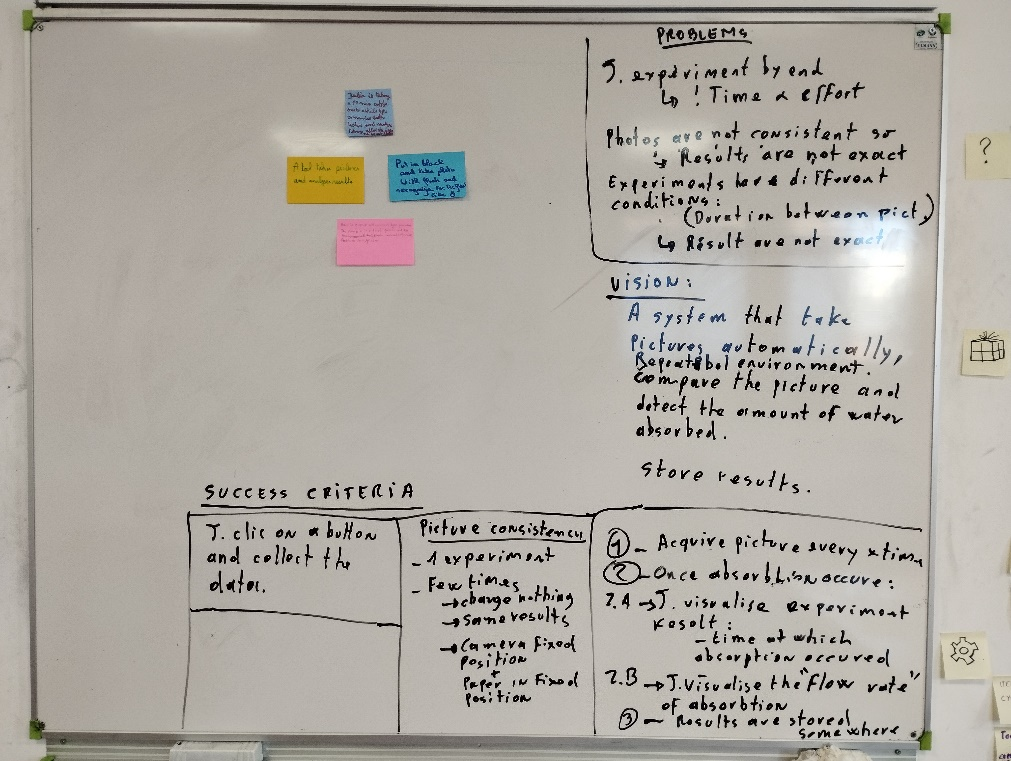 PROBLEMS
J. experiment by end
↳ ! Time & effort
Photos are not consistent so
↳ Results are not exact
Experiments have different
conditions:
(Duration between pict,)
↳ Result are not exact
VISION:
A system that take
pictures automatically,
Repeatabol environment.
Compare the picture and
detect the amount of water
absorbed.
store results.
A bot takes pictures
and analyse results
Put in black
and take photo
With
SUCCESS CRITERIA
J. clic on a button
and collect the
data.
Picture consistency
- 1 experiment
- Few times
→ change nothing
→ same results
→ Camera fixed
position
+
Paper in Fixed
position
① - Acquire picture every x time
② - Once absorbtion occure:
2.A → J. visualise experiment
Result:
- time at which
absorption occured
2.B → J. Visualise the "flow rate"
of absorbtion
③ - Results are stored
somewhere.
?